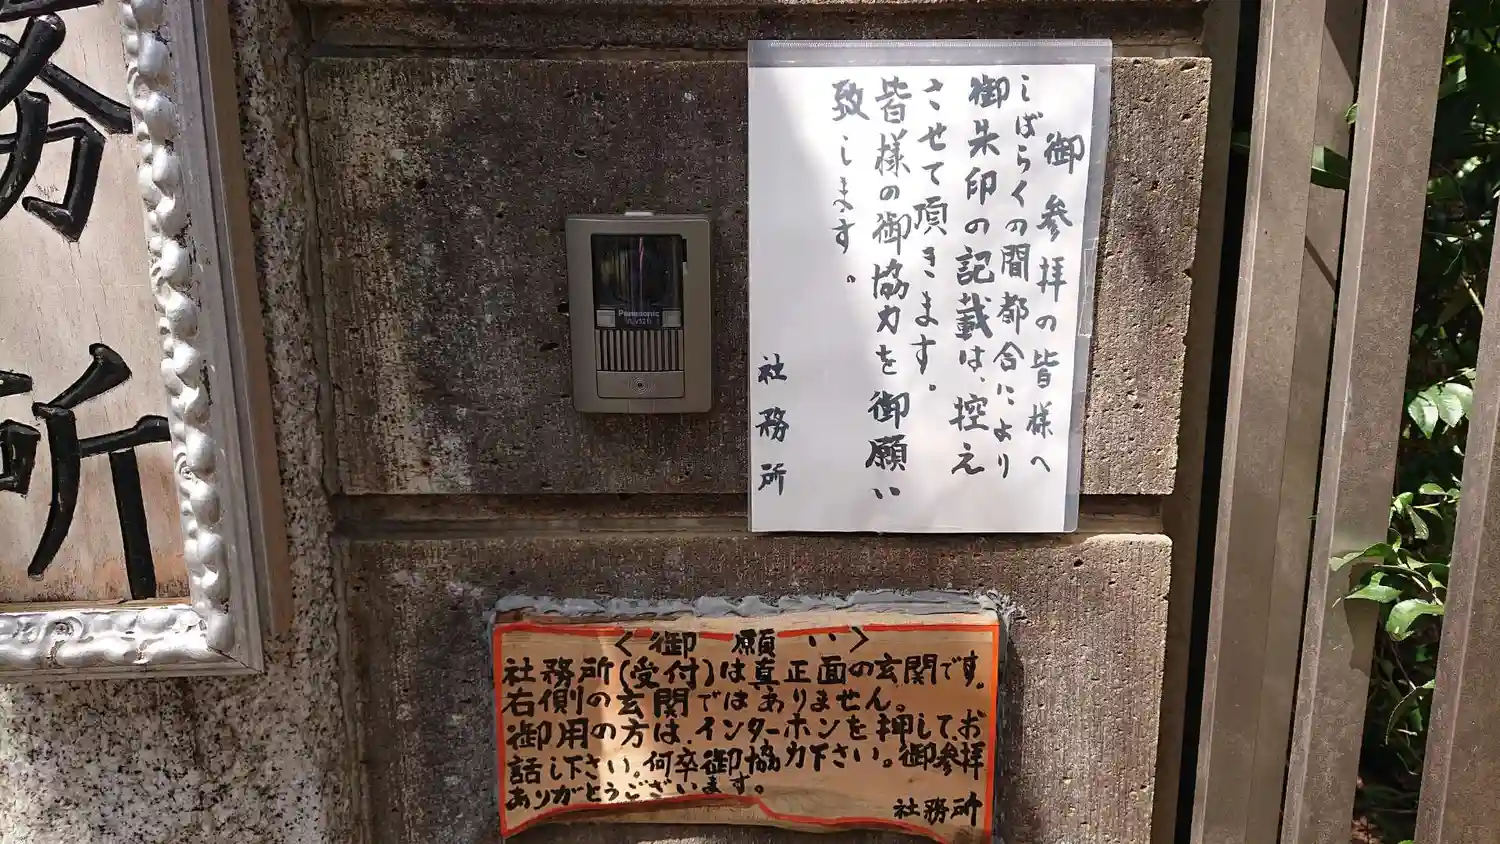 務
所
Panasonic
御参拝の皆様へ
しばらくの間都合により
御朱印の記載は、控え
させて頂きます。
皆様の御協力を御願い
致します。
社務所
〈御願い〉
社務所(受付)は真正面の玄関です。
右側の玄関ではありません。
御用の方は、インターホンを押して、お
話し下さい。何卒御協力下さい。御参拝
ありがとうございます。
社務所